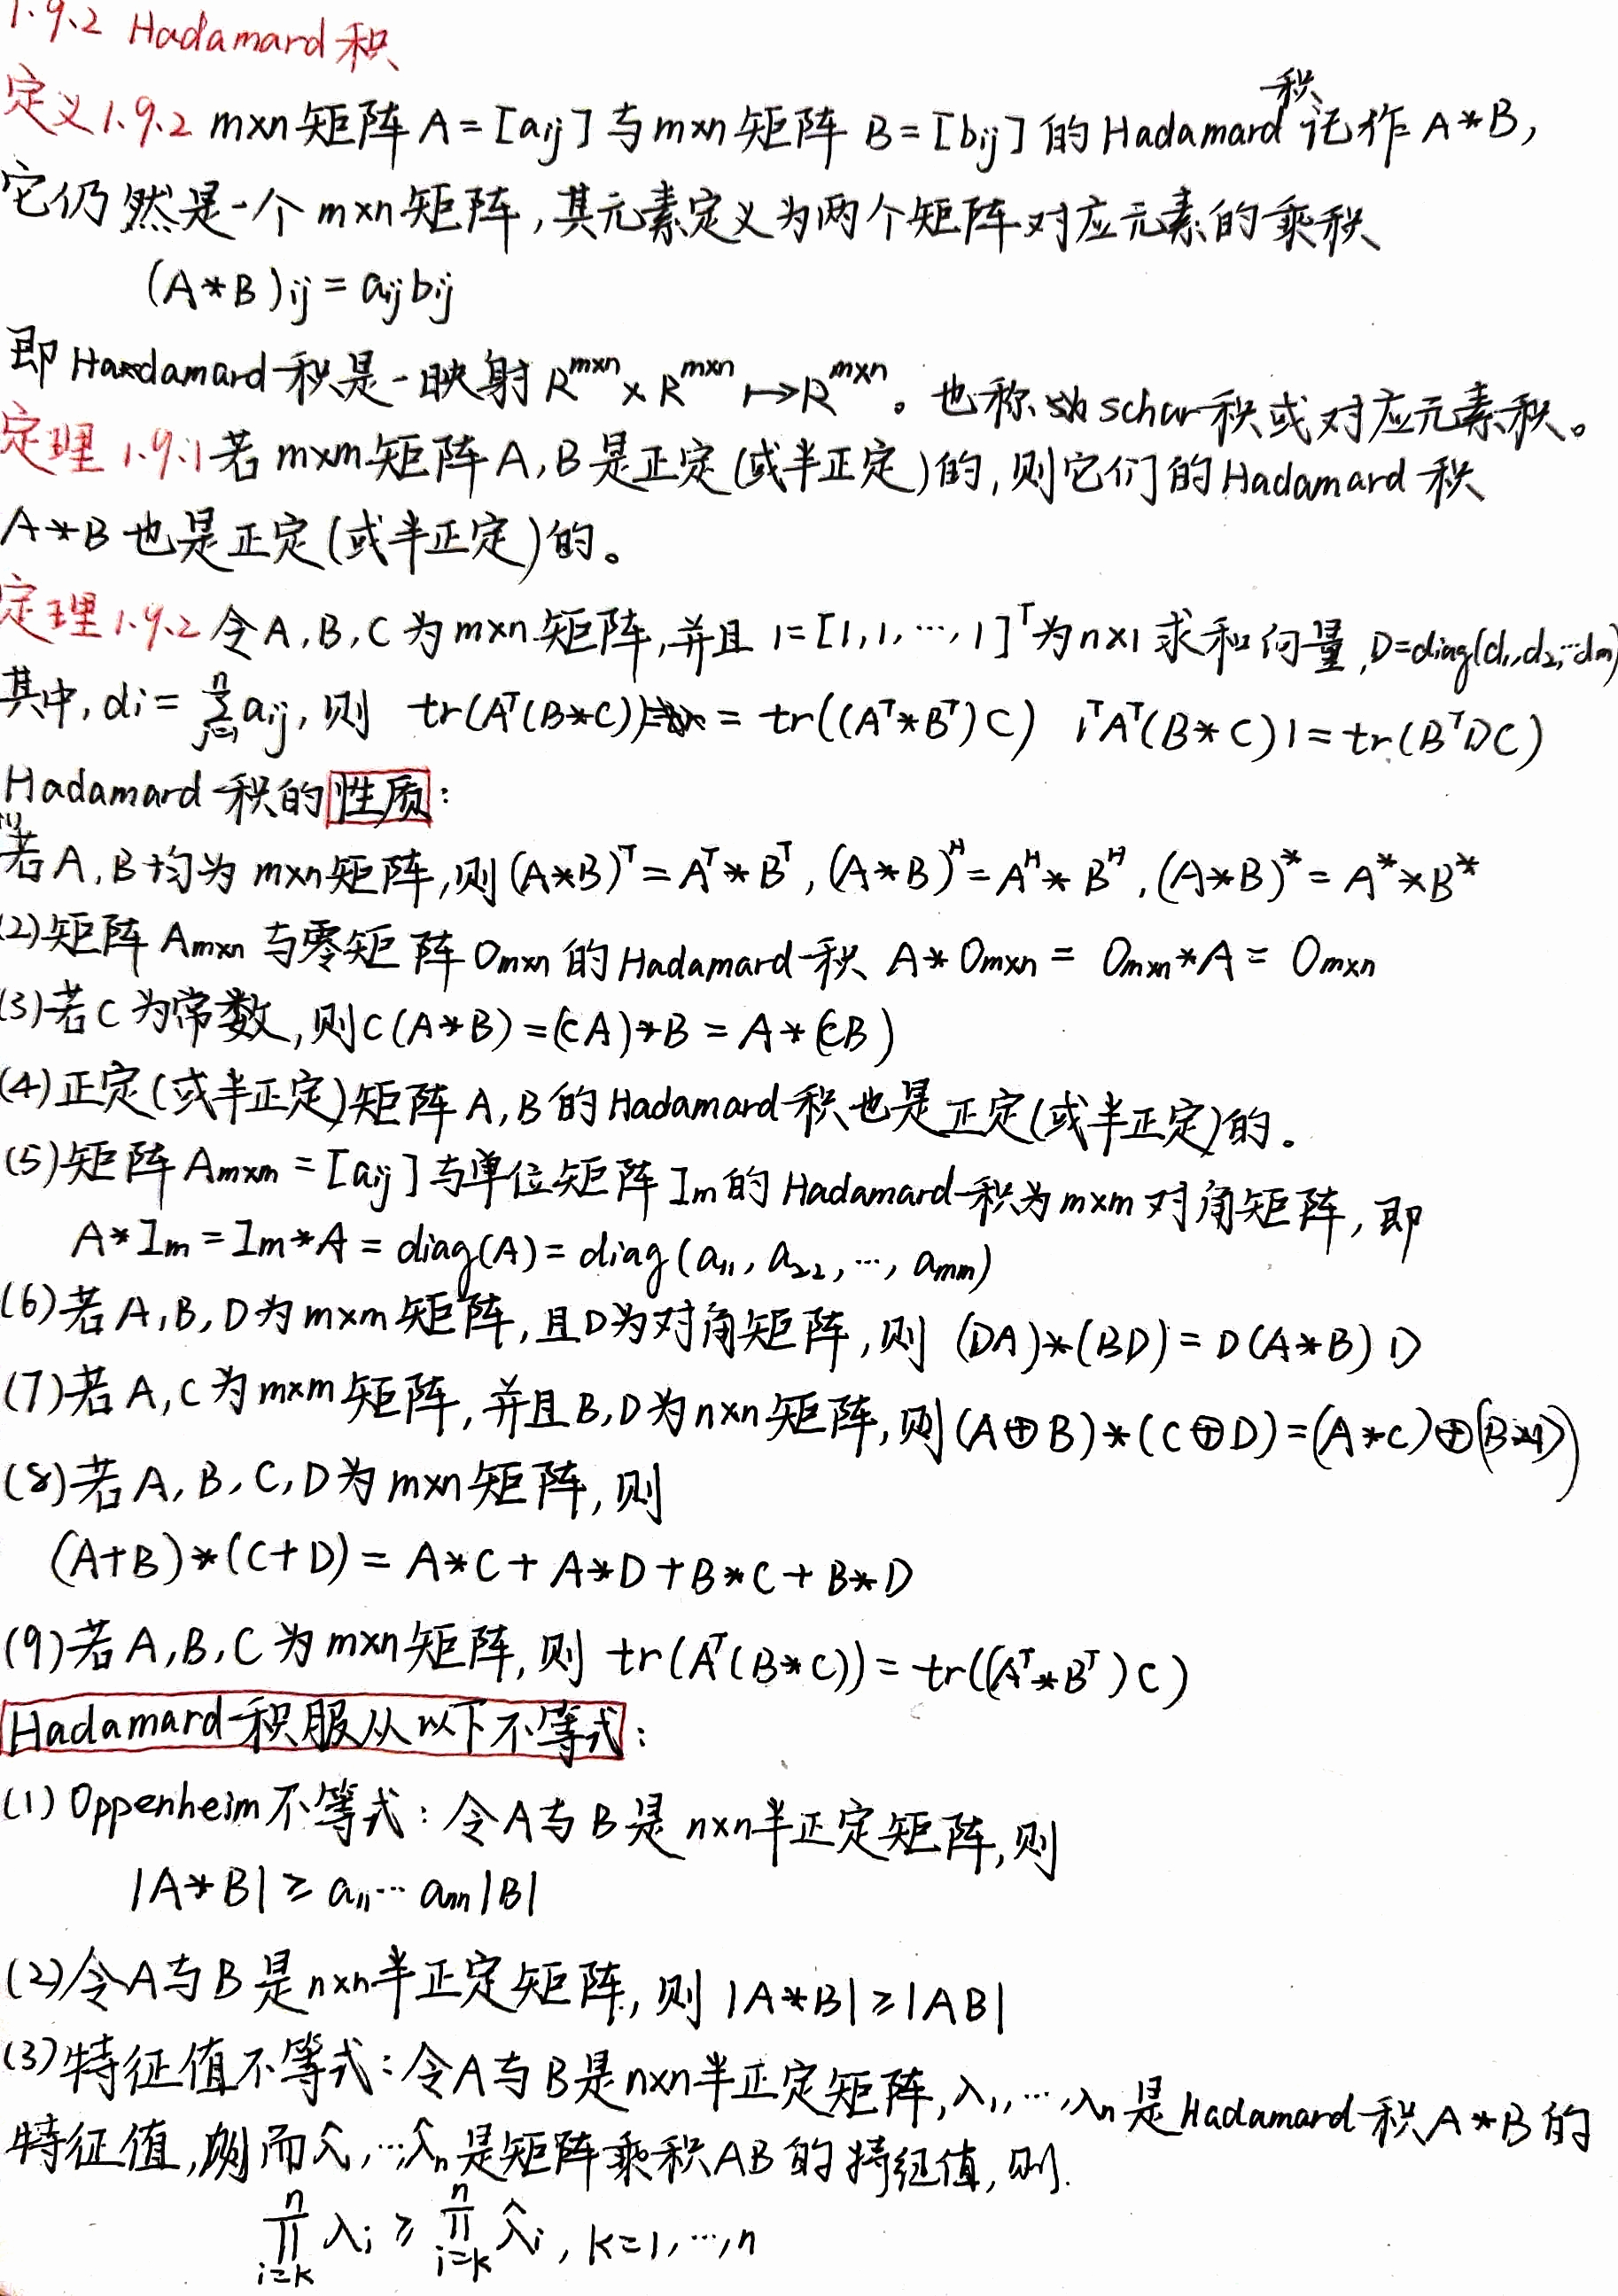 1.9.2 Hadamard 积
定义1.9.2 m×n矩阵 A=[aij]与m×n矩阵 B=[bij]的Hadamard积记作 A*B,
它仍然是一个 m×n矩阵,其元素定义为两个矩阵对应元素的乘积
(A*B)ij = aijbij
即Hadamard积是一映射 R^{m×n}×R^{m×n}↦R^{m×n}。也称 schur积或对应元素积。
定理 1.9.1 若 m×m矩阵A,B是正定(或半正定)的,则它们的Hadamard 积
A*B也是正定(或半正定)的。
定理1.9.2 令A,B,C为m×n矩阵,并且 1=[1,1,…,1]^T为n×1求和向量,D=diag(d₁,d₂,…dm)
其中,di=\sum_{j=1}^{n}aij,则 tr(A^T(B*C)) = tr((A^T*B^T)C) 1^TA^T(B*C)1=tr(B^TDC)
Hadamard 积的性质:
(1)若A,B均为 m×n矩阵,则(A*B)^T=A^T*B^T,(A*B)^H=A^H*B^H,(A*B)^*=A^*×B^*
(2)矩阵 Am×n与零矩阵Om×n的Hadamard积 A*Om×n = Om×n*A = Om×n
(3)若C为常数,则C(A*B)=(cA)*B=A*(cB)
(4)正定(或半正定)矩阵A,B的Hadamard积也是正定(或半正定)的。
(5)矩阵Am×m=[aij]与单位矩阵Im的Hadamard积为m×m对角矩阵,即
A*Im=Im*A=diag(A)=diag(a₁₁,a₂₂,…,amm)
(6)若A,B,D为m×m矩阵,且D为对角矩阵,则 (DA)*(BD)=D(A*B)D
(7)若A,C为m×m矩阵,并且B,D为n×n矩阵,则(A⊕B)*(C⊕D)=(A*C)⊕(B*D)
(8)若A,B,C,D为m×n矩阵,则
(A+B)*(C+D)=A*C+A*D+B*C+B*D
(9)若A,B,C为m×n矩阵,则 tr(A^T(B*C))=tr((A^T*B^T)C)
Hadamard积服从以下不等式:
(1)Oppenheim不等式:令A与B是n×n半正定矩阵,则
|A*B|≥a₁₁…ann|B|
(2)令A与B是n×n半正定矩阵,则|A*B|≥|AB|
(3)特征值不等式:令A与B是n×n半正定矩阵,λ₁,…,λn是Hadamard积A*B的
特征值,而λ̂₁,…λ̂n是矩阵乘积AB的特征值,则
\prod_{i=k}^{n}λi≥\prod_{i=k}^{n}λ̂i,k=1,…,n